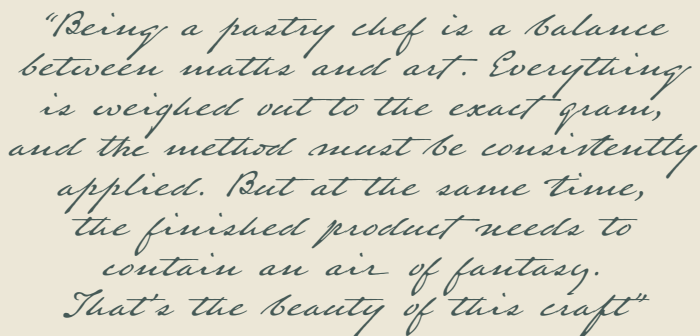 “Being a pastry chef is a balance
between maths and art. Everything
is weighed out to the exact gram,
and the method must be consistently
applied. But at the same time,
the finished product needs to
contain an air of fantasy.
That's the beauty of this craft”